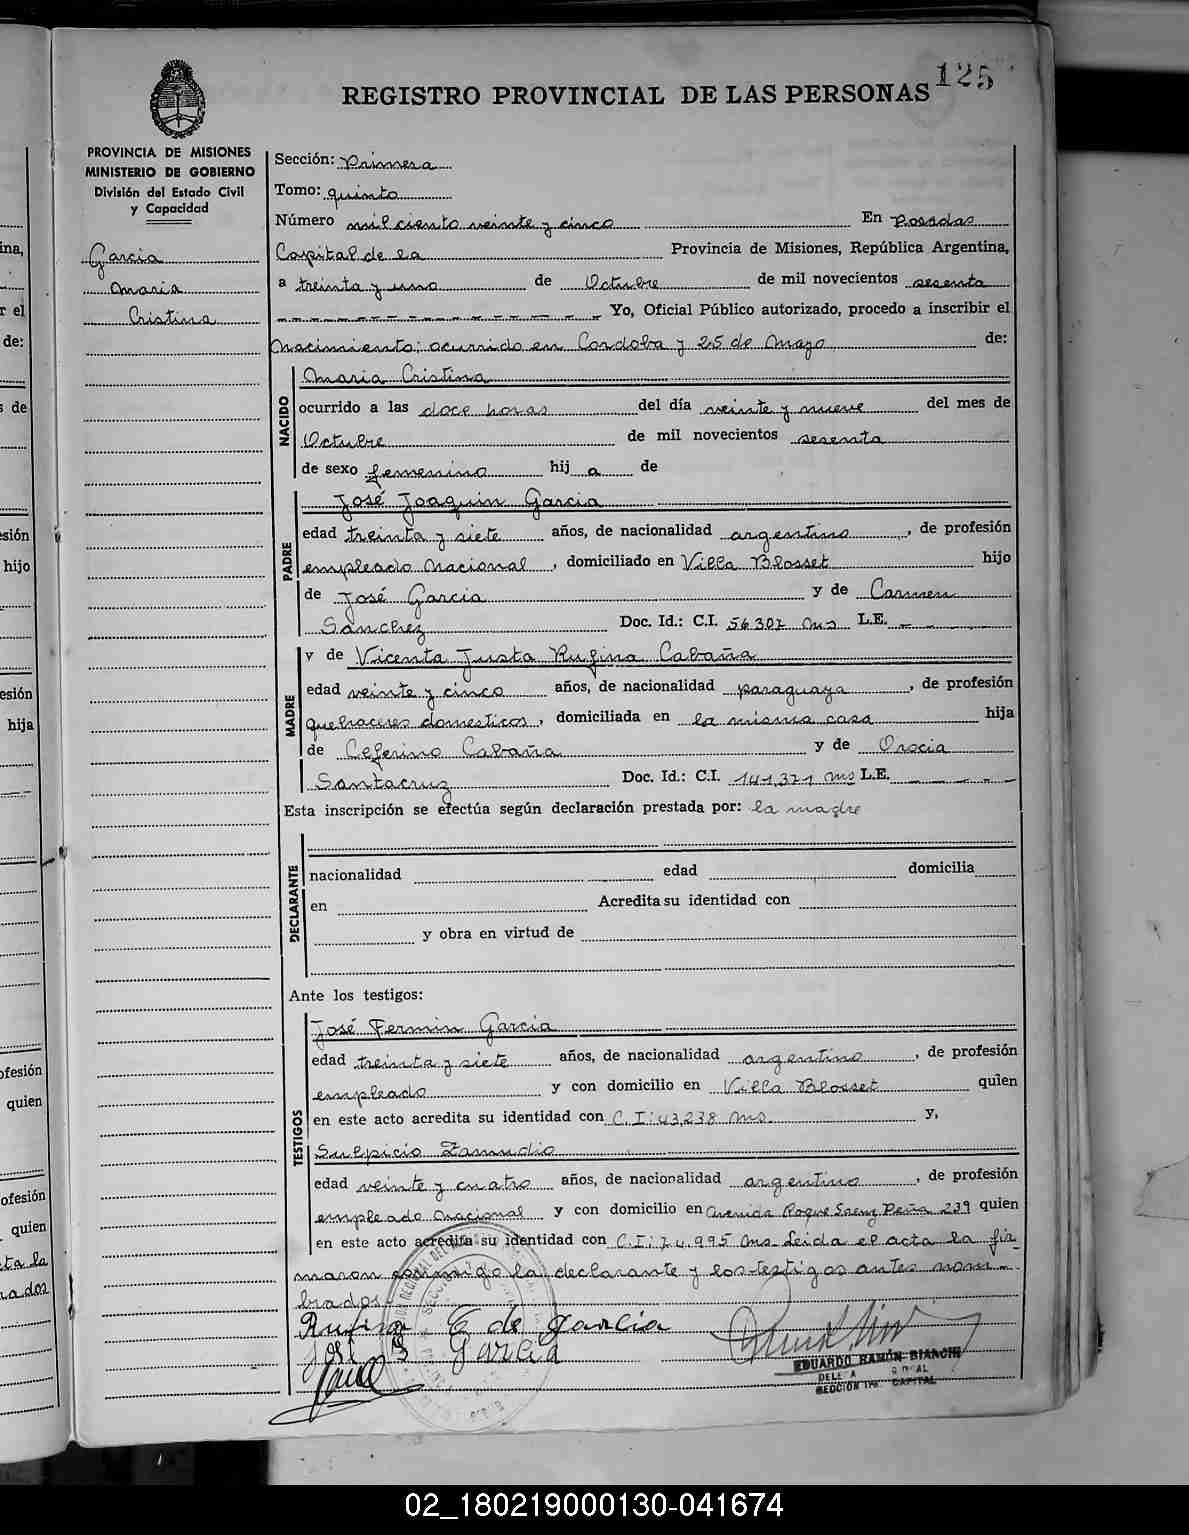 125
REGISTRO PROVINCIAL DE LAS PERSONAS
PROVINCIA DE MISIONES
MINISTERIO DE GOBIERNO
División del Estado Civil
y Capacidad
Garcia
Maria
Cristina
Sección: Primera
Tomo: quinto
Número mil ciento veinte y cinco En Posadas
Capital de la Provincia de Misiones, República Argentina,
a treinta y uno de Octubre de mil novecientos sesenta
Yo, Oficial Público autorizado, procedo a inscribir el
Nacimiento: ocurrido en Cordoba y 25 de Mayo de:
NACIDO
Maria Cristina
ocurrido a las doce horas del día veinte y nueve del mes de
Octubre de mil novecientos sesenta
de sexo femenino hij a de
PADRE
José Joaquin Garcia
edad treinta y siete años, de nacionalidad argentino, de profesión
empleado Nacional, domiciliado en Villa Blosset hijo
de José Garcia y de Carmen
Sánchez Doc. Id.: C.I. 56307 Ms L.E.
MADRE
y de Vicenta Justa Rufina Cabaña
edad veinte y cinco años, de nacionalidad paraguaya, de profesión
quehaceres domesticos, domiciliada en la misma casa hija
de Ceferino Cabaña y de Orocia
Santacruz Doc. Id.: C.I. 141,371 Ms L.E.
Esta inscripción se efectúa según declaración prestada por: la madre
DECLARANTE
nacionalidad edad domicilia
en Acredita su identidad con
y obra en virtud de
Ante los testigos:
TESTIGOS
José Fermin Garcia
edad treinta y siete años, de nacionalidad argentino, de profesión
empleado y con domicilio en Villa Blosset quien
en este acto acredita su identidad con C.I: 43,238 Ms. y,
Sulpicio Zamudio
edad veinte y cuatro años, de nacionalidad argentino, de profesión
empleado Nacional y con domicilio en Avenida Roque Saenz Peña 239 quien
en este acto acredita su identidad con C.I: 74,995 Ms. Leida el acta la fir-
maron conmigo la declarante y los testigos antes nom-
brados.
Rufina C de Garcia
José Garcia
EDUARDO RAMÓN BIANCHI
SECCION 1ra. CAPITAL
02_180219000130-041674